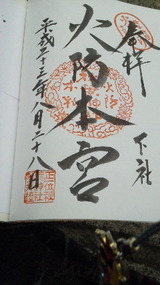 奉拝
下社
火防本宮
平成二十三年八月二十八日